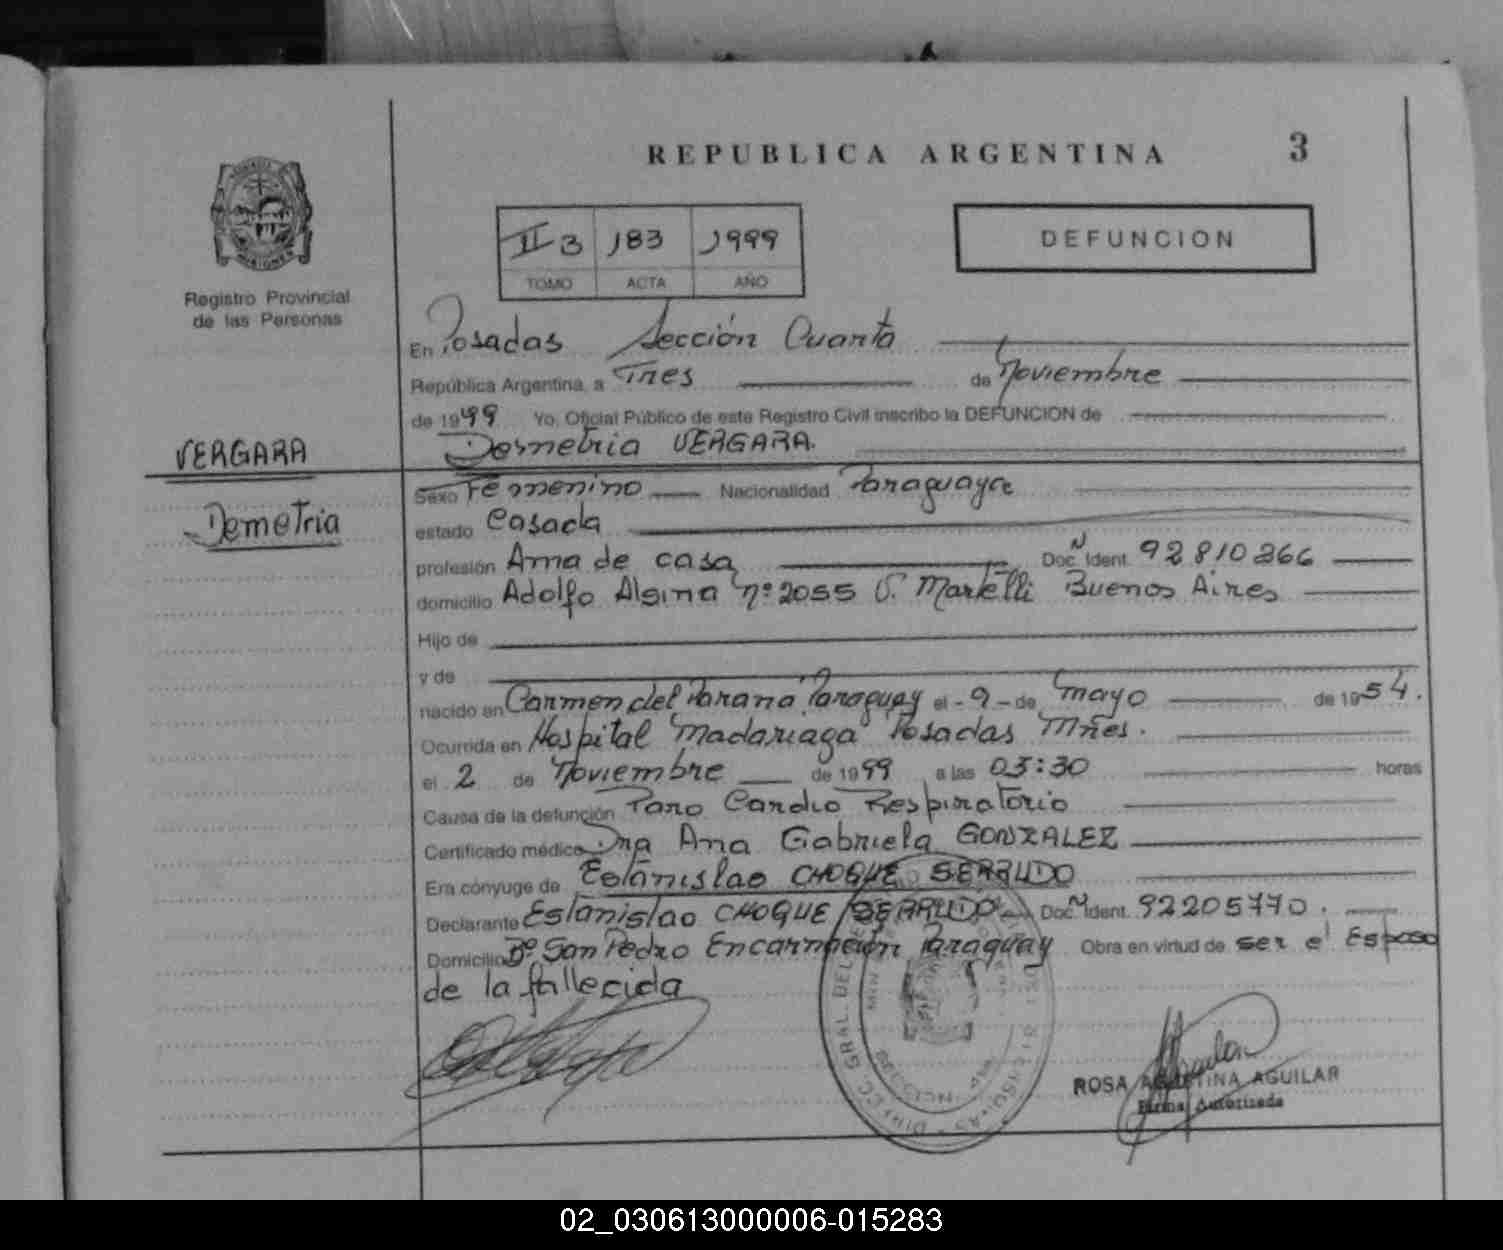 REPUBLICA ARGENTINA 3
II 3 183 1999
TOMO ACTA AÑO
DEFUNCION
Registro Provincial
de las Personas
En Posadas Sección Cuarta
República Argentina, a Tres de Noviembre
de 1999 Yo, Oficial Público de este Registro Civil inscribo la DEFUNCION de
VERGARA
Demetria VERGARA
Demetria
Sexo Femenino Nacionalidad Paraguaya
estado Casada
profesión Ama de casa Doc. N Ident. 92810266
domicilio Adolfo Alsina nº 2055 V. Martelli Buenos Aires
Hijo de
y de
nacido en Carmen del Parana Paraguay el - 9 - de mayo de 1954.
Ocurrida en Hospital Madariaga Posadas Mñes.
el 2 de Noviembre de 1999 a las 03:30 horas
Causa de la defunción Paro Cardio Respiratorio
Certificado médico Dra Ana Gabriela GONZALEZ
Era cónyuge de Estanislao CHOQUE SERRUDO
Declarante Estanislao CHOQUE SERRUDO Doc. N Ident. 92205770.
Domicilio Bº San Pedro Encarnación Paraguay Obra en virtud de ser el Esposo
de la fallecida
ROSA AGUSTINA AGUILAR
Firma Autorizada
02_030613000006-015283